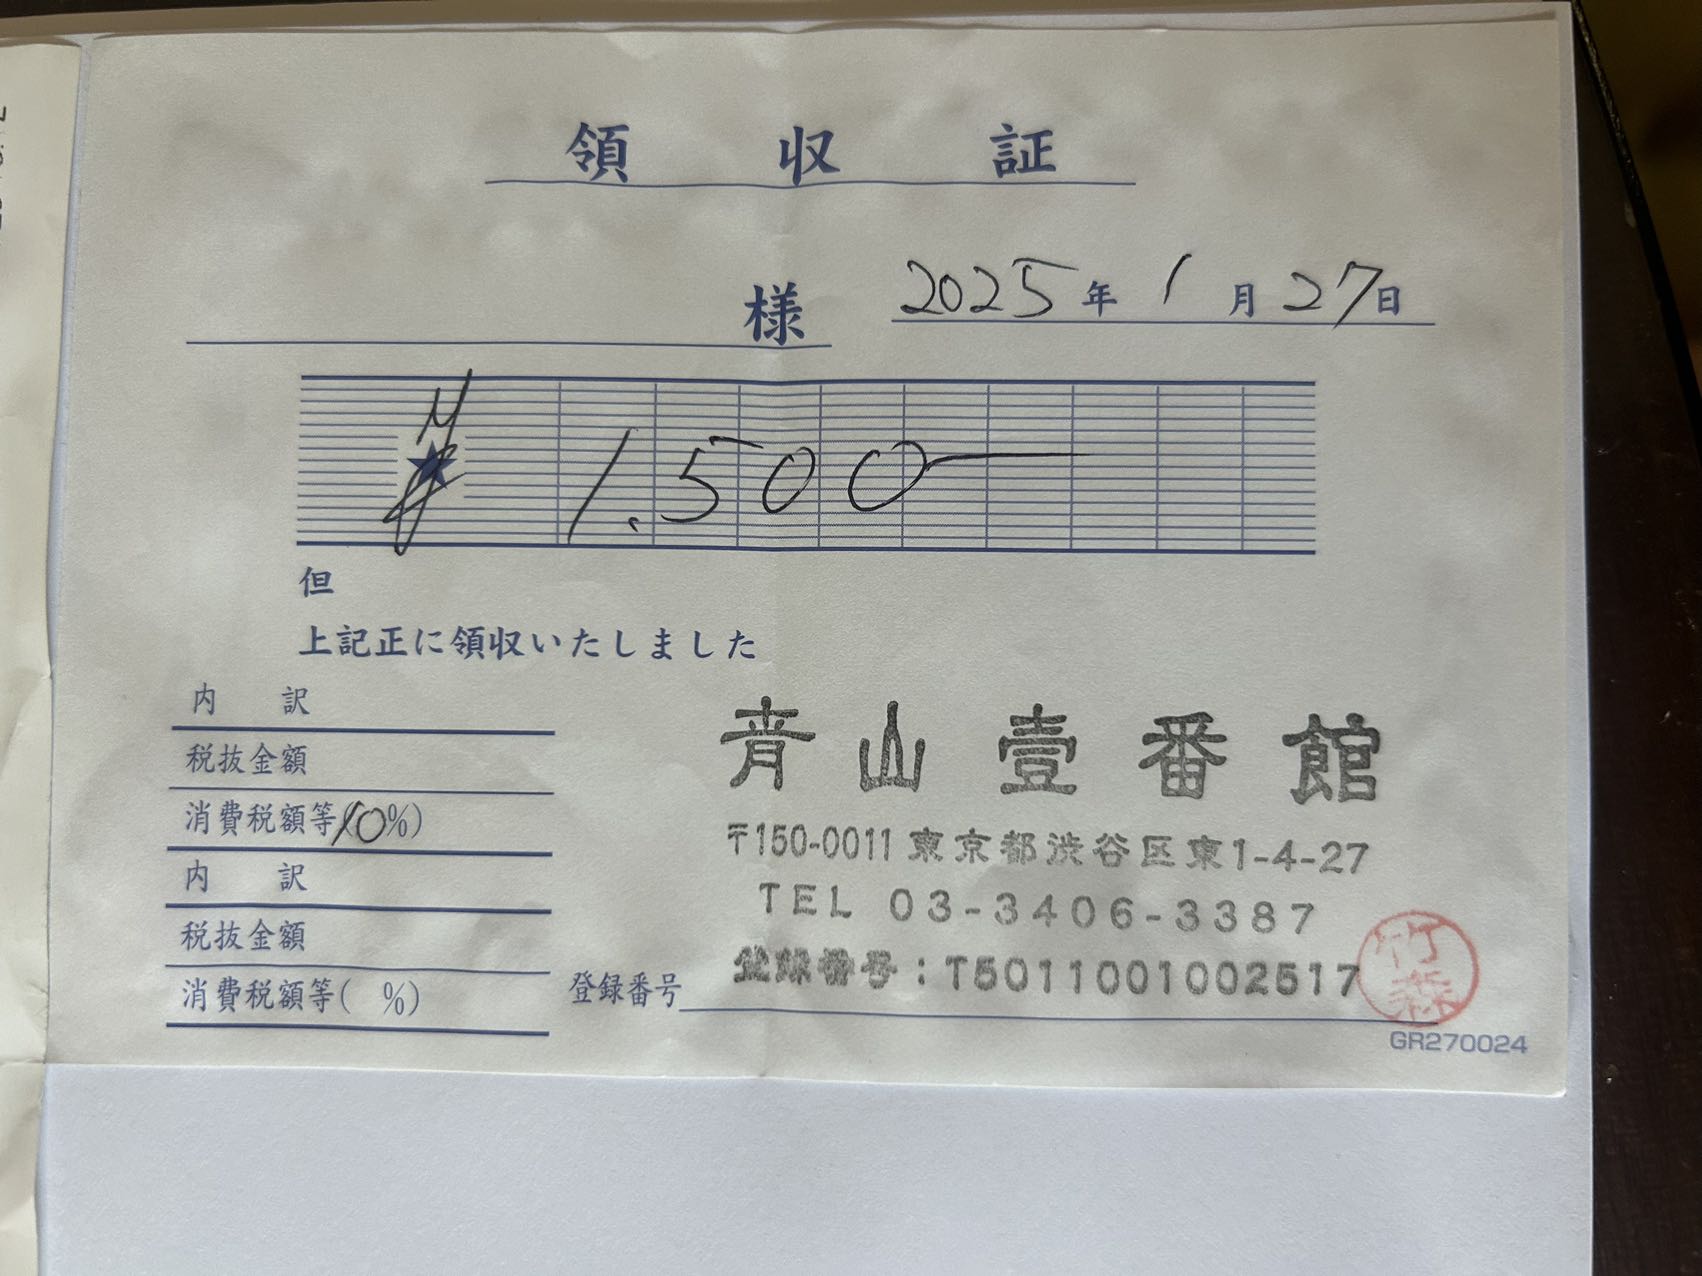 領収証
様 2025年1月27日
¥ ★ 1.500
但
上記正に領収いたしました
内訳
税抜金額
消費税額等(10%)
内訳
税抜金額
消費税額等( %)
青山壹番館
〒150-0011 東京都渋谷区東1-4-27
TEL 03-3406-3387
登録番号 登録番号:T5011001002517
竹森
GR270024